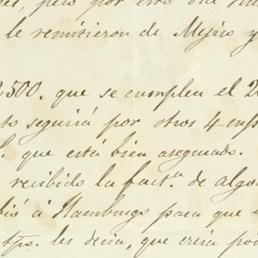 pero por esto
le remitieron de Mejico y
2500. que se cumplen el 2
to seguirá por otros 4 mes
que está bien asegurado.
recibido la fact.ᵃ de algo
ió á Hamburgo para que
tpo. les decia, que creia po